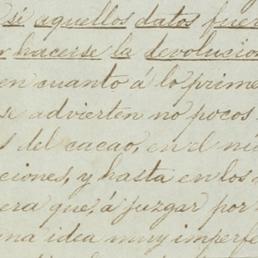 si aquellos datos fue
hacerse la devolucion
en cuanto á lo prime
se advierten no pocos
s del cacao, en el nú
ciones, y hasta en los
era que, á juzgar por
una idea muy imperfe